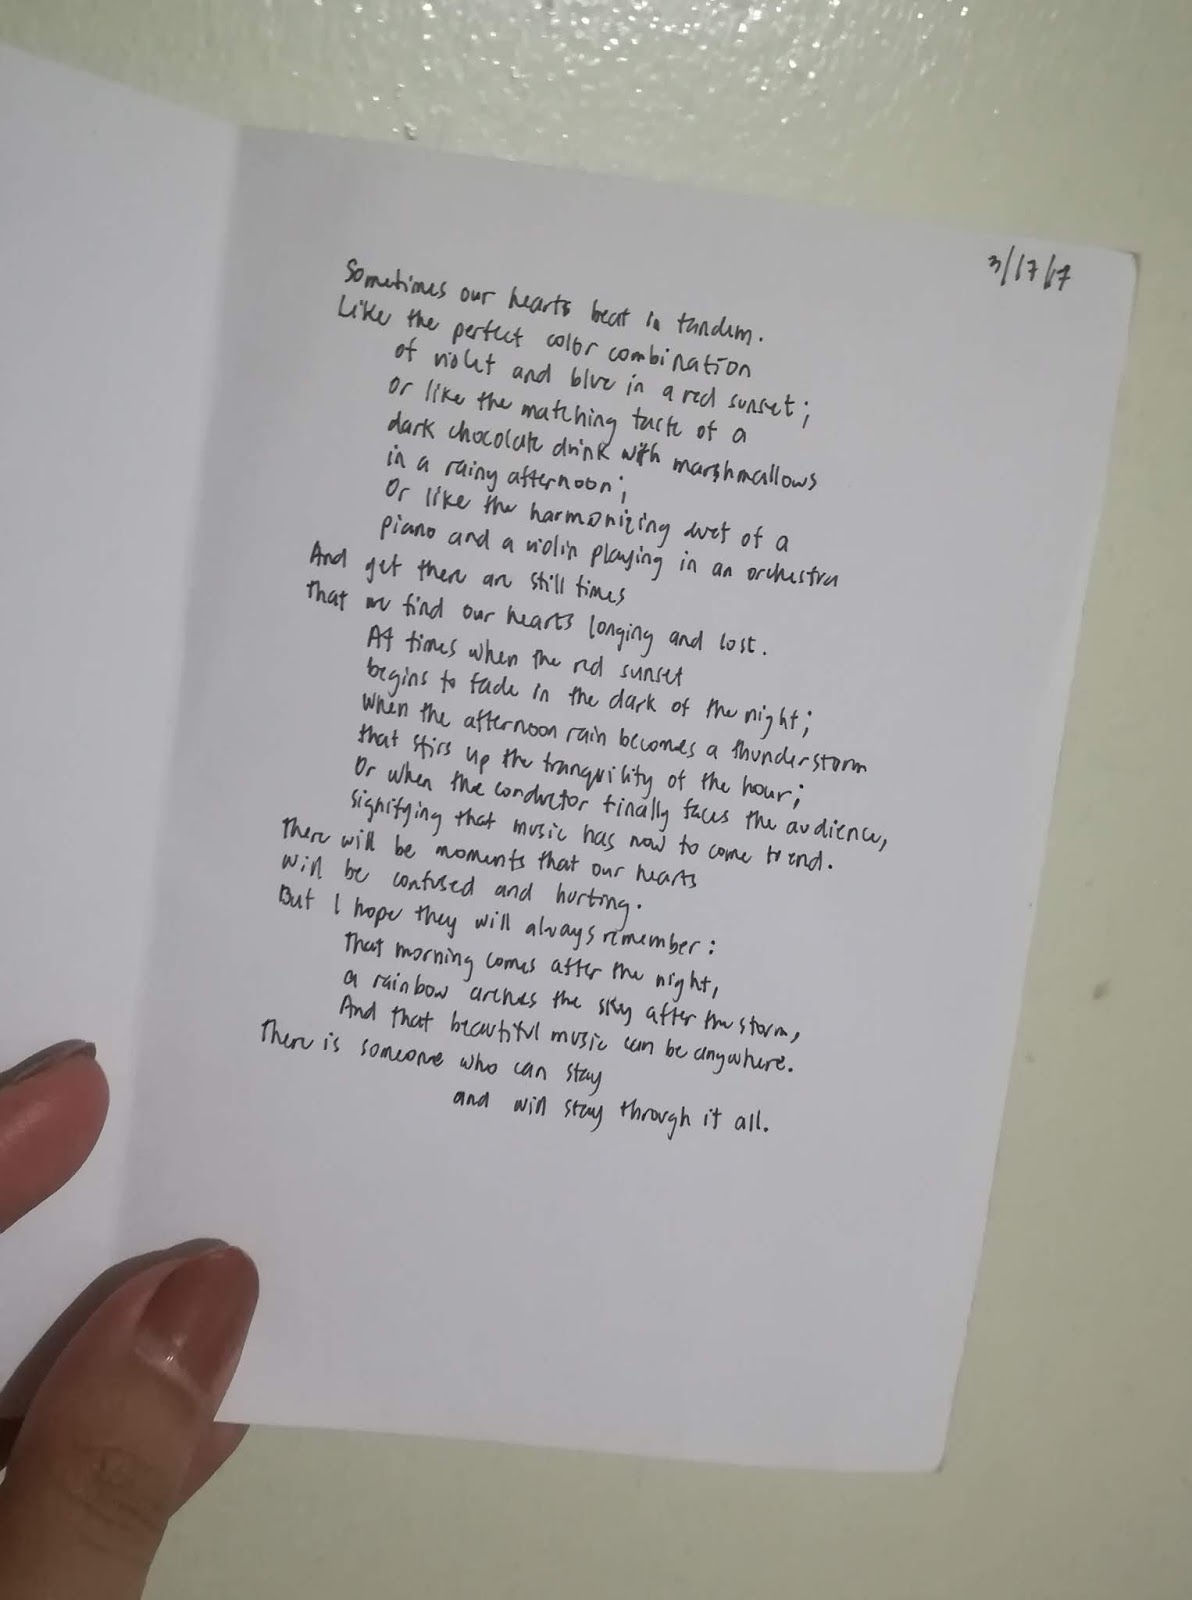 3/17/17
Sometimes our hearts beat in tandem.
Like the perfect color combination
of violet and blue in a red sunset;
Or like the matching taste of a
dark chocolate drink with marshmallows
in a rainy afternoon;
Or like the harmonizing duet of a
piano and a violin playing in an orchestra
And yet there are still times
That we find our hearts longing and lost.
At times when the red sunset
begins to fade in the dark of the night;
When the afternoon rain becomes a thunderstorm
that stirs up the tranquility of the hour;
Or when the conductor finally faces the audience,
signifying that music has now to come to end.
There will be moments that our hearts
will be confused and hurting.
But I hope they will always remember:
That morning comes after the night,
a rainbow arches the sky after the storm,
And that beautiful music can be anywhere.
There is someone who can stay
and will stay through it all.